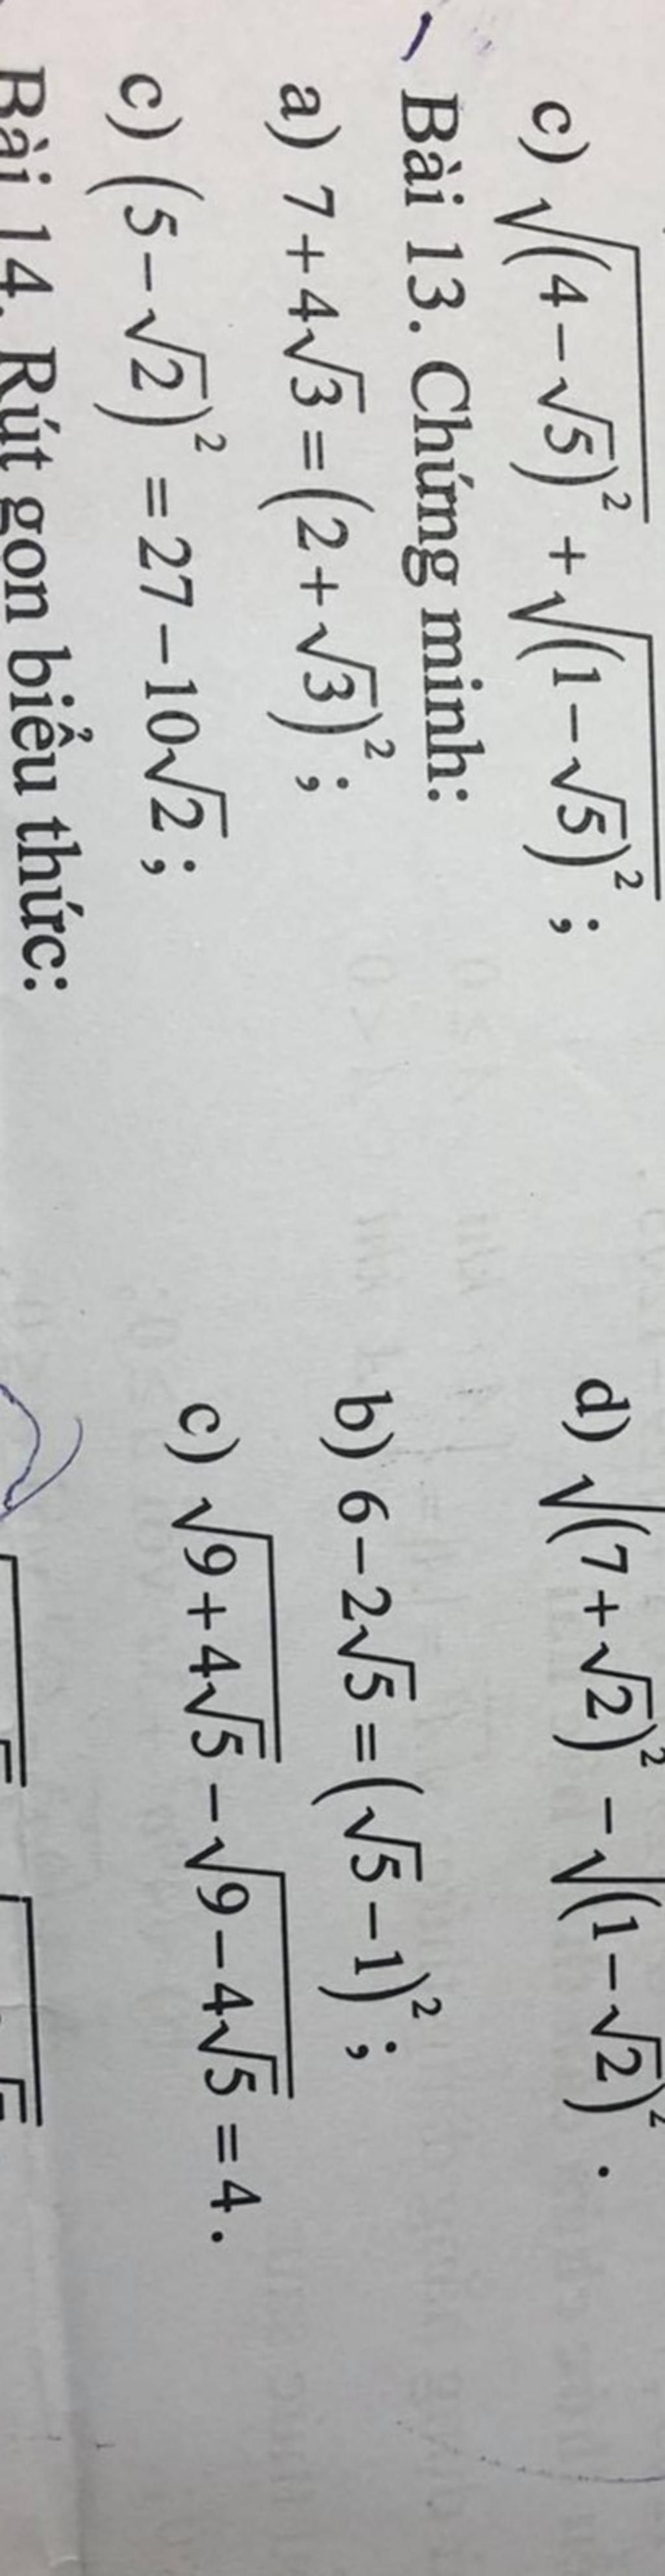 c) √(4−√5)² + √(1−√5)² ; d) √(7+√2)² − √(1−√2)² .
Bài 13. Chứng minh:
a) 7+4√3 = (2+√3)² ; b) 6−2√5 = (√5−1)² ;
c) (5−√2)² = 27−10√2 ; c) √9+4√5 − √9−4√5 = 4 .
Bài 14. Rút gọn biểu thức: